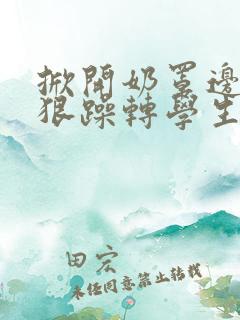 掀開奶罩邊
狠躁轉學生
田宏
未经同意禁止转载